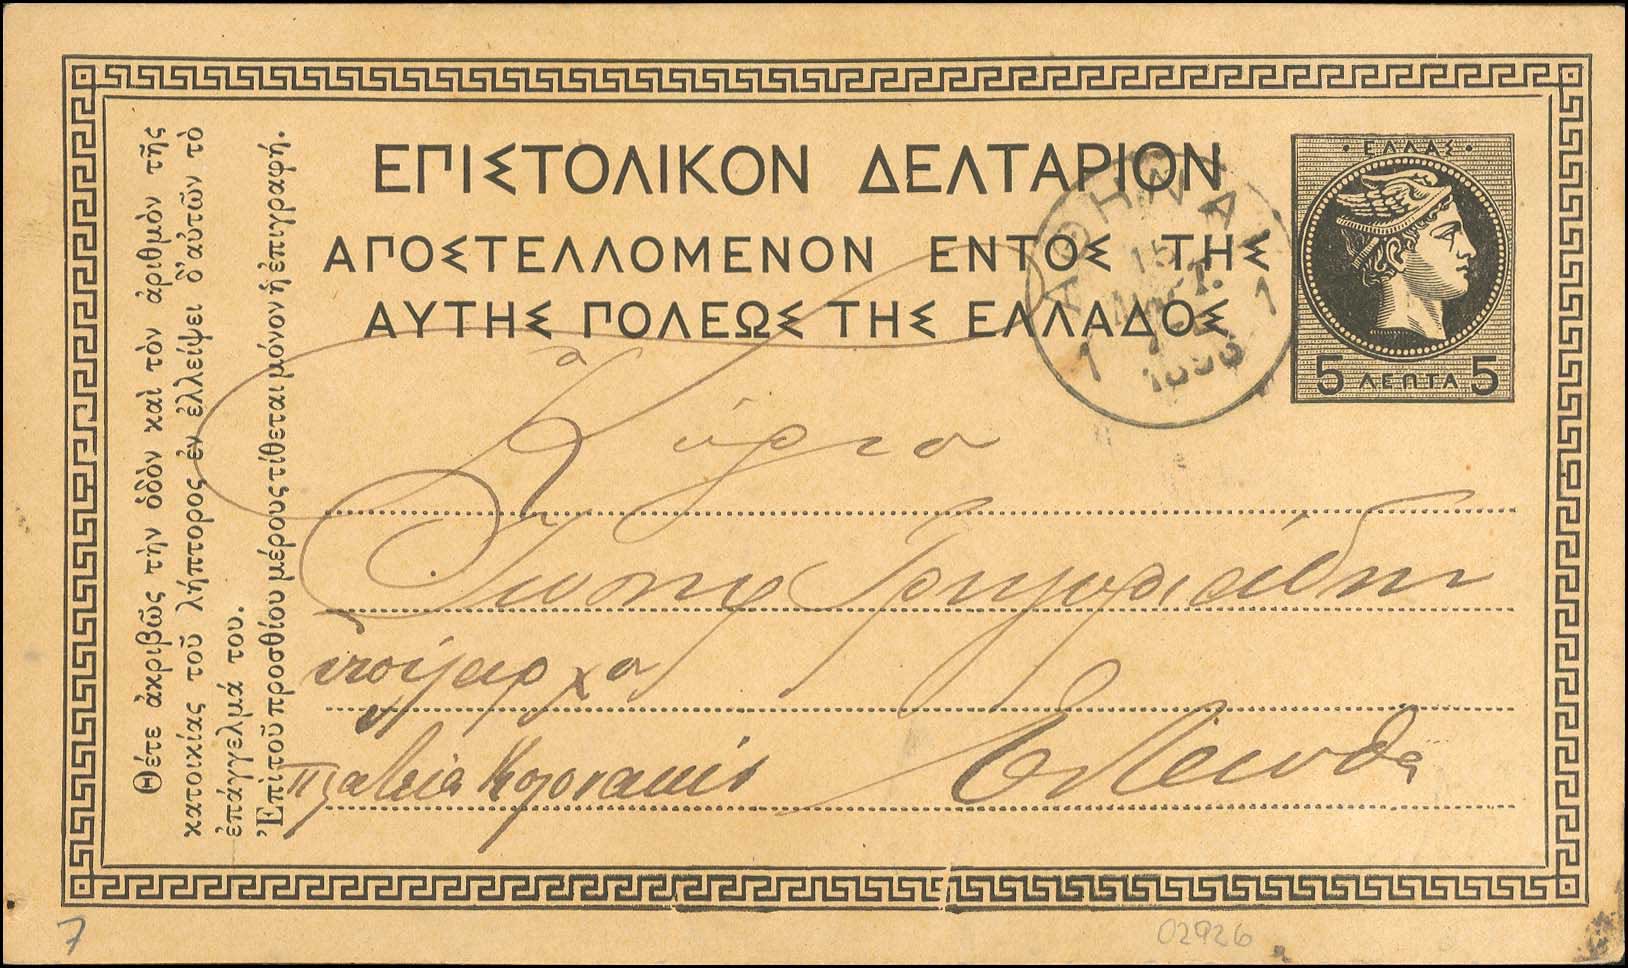 ΕΠΙΣΤΟΛΙΚΟΝ ΔΕΛΤΑΡΙΟΝ
ΑΠΟΣΤΕΛΛΟΜΕΝΟΝ ΕΝΤΟΣ ΤΗΣ
ΑΥΤΗΣ ΠΟΛΕΩΣ ΤΗΣ ΕΛΛΑΔΟΣ
• ΕΛΛΑΣ •
5 ΛΕΠΤΑ 5
ΑΘΗΝΑΙ
15
ΜΑΡΤ.
1 1
Θέτε ἀκριβῶς τὴν ὁδὸν καὶ τὸν ἀριθμὸν τῆς
κατοικίας τοῦ λήπτορος ἐν ἐλλείψει δ'αὐτῶν τὸ
ἐπάγγελμά του.
Ἐπὶ τοῦ προσθίου μέρους τίθεται μόνον ἡ ἐπιγραφή.
Κύριο
Ἰωσὴφ
πλατεῖα Κολονακίου
Ἐνταῦθα
7
02926